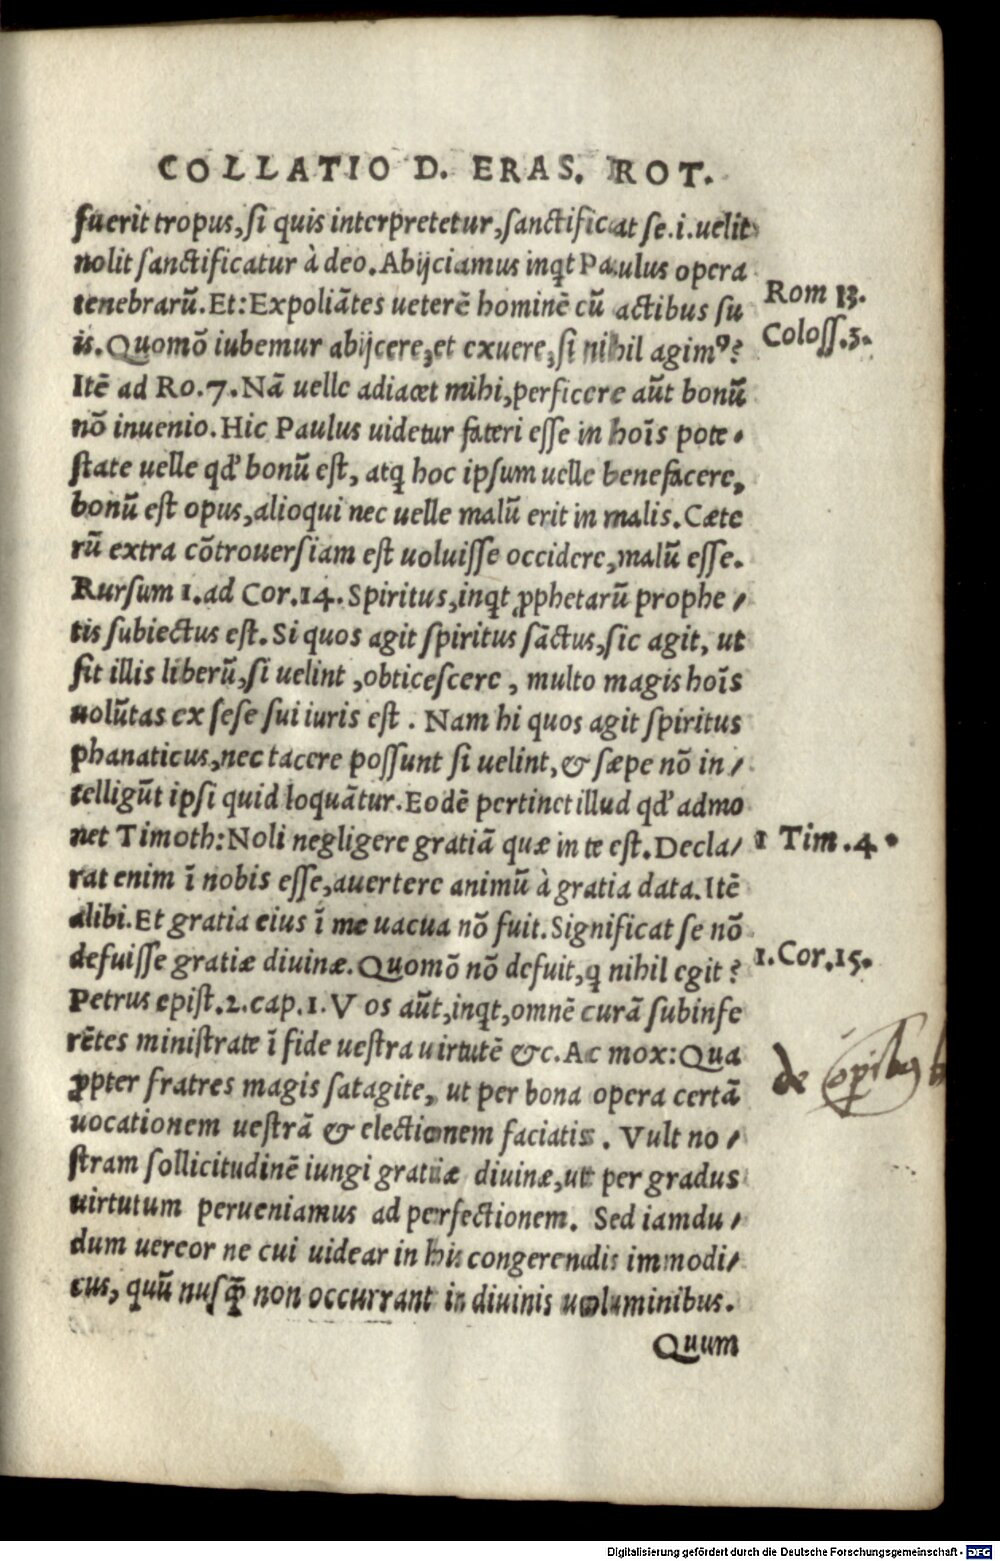 COLLATIO D. ERAS. ROT.
fuerit tropus, si quis interpretetur, sanctificat se .i. uelit
nolit sanctificatur à deo. Abijciamus inqͭ Paulus opera
tenebrarū. Et: Expoliātes ueterē hominē cū actibus su
is. Quomō iubemur abijcere, et exuere, si nihil agimꝰ?
Rom 13.
Coloss. 3.
Itē ad Ro. 7. Nā uelle adiacet mihi, perficere aūt bonū
nō inuenio. Hic Paulus uidetur fateri esse in hoīs pote⸗
state uelle qd' bonū est, atq; hoc ipsum uelle benefacere,
bonū est opus, alioqui nec uelle malū erit in malis. Cæte
rū extra cōtrouersiam est uoluisse occidere, malū esse.
Rursum 1. ad Cor. 14. Spiritus, inqͭ ꝓphetarū prophe⸗
tis subiectus est. Si quos agit spiritus sāctus, sic agit, ut
sit illis liberū, si uelint, obticescere, multo magis hoīs
uolūtas ex sese sui iuris est. Nam hi quos agit spiritus
phanaticus, nec tacere possunt si uelint, & sæpe nō in⸗
telligūt ipsi quid loquātur. Eodē pertinet illud qd' admo
net Timoth: Noli negligere gratiā quæ in te est. Decla⸗
1 Tim. 4.
rat enim ī nobis esse, auertere animū à gratia data. Itē
alibi. Et gratia eius ī me uacua nō fuit. Significat se nō
defuisse gratiæ diuinæ. Quomō nō defuit, q nihil egit?
1. Cor. 15.
Petrus epist. 2. cap. 1. Vos aūt, inqͭ, omnē curā subinfe
rētes ministrate ī fide uestra uirtutē &c. Ac mox: Qua
ꝓpter fratres magis satagite, ut per bona opera certā
de
uocationem uestrā & electionem faciatis. Vult no⸗
stram sollicitudinē iungi gratiæ diuinæ, ut per gradus
uirtutum perueniamus ad perfectionem. Sed iamdu⸗
dum uereor ne cui uidear in his congerendis immodi⸗
cus, quū nusꝗ̄ non occurrant in diuinis uoluminibus.
Quum
Digitalisierung gefördert durch die Deutsche Forschungsgemeinschaft - DFG